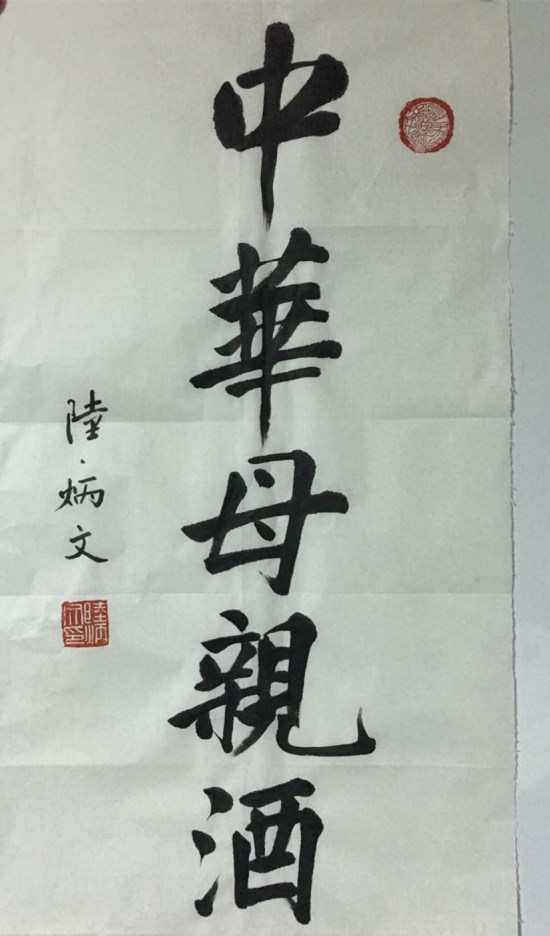 中華母親酒
陸炳文